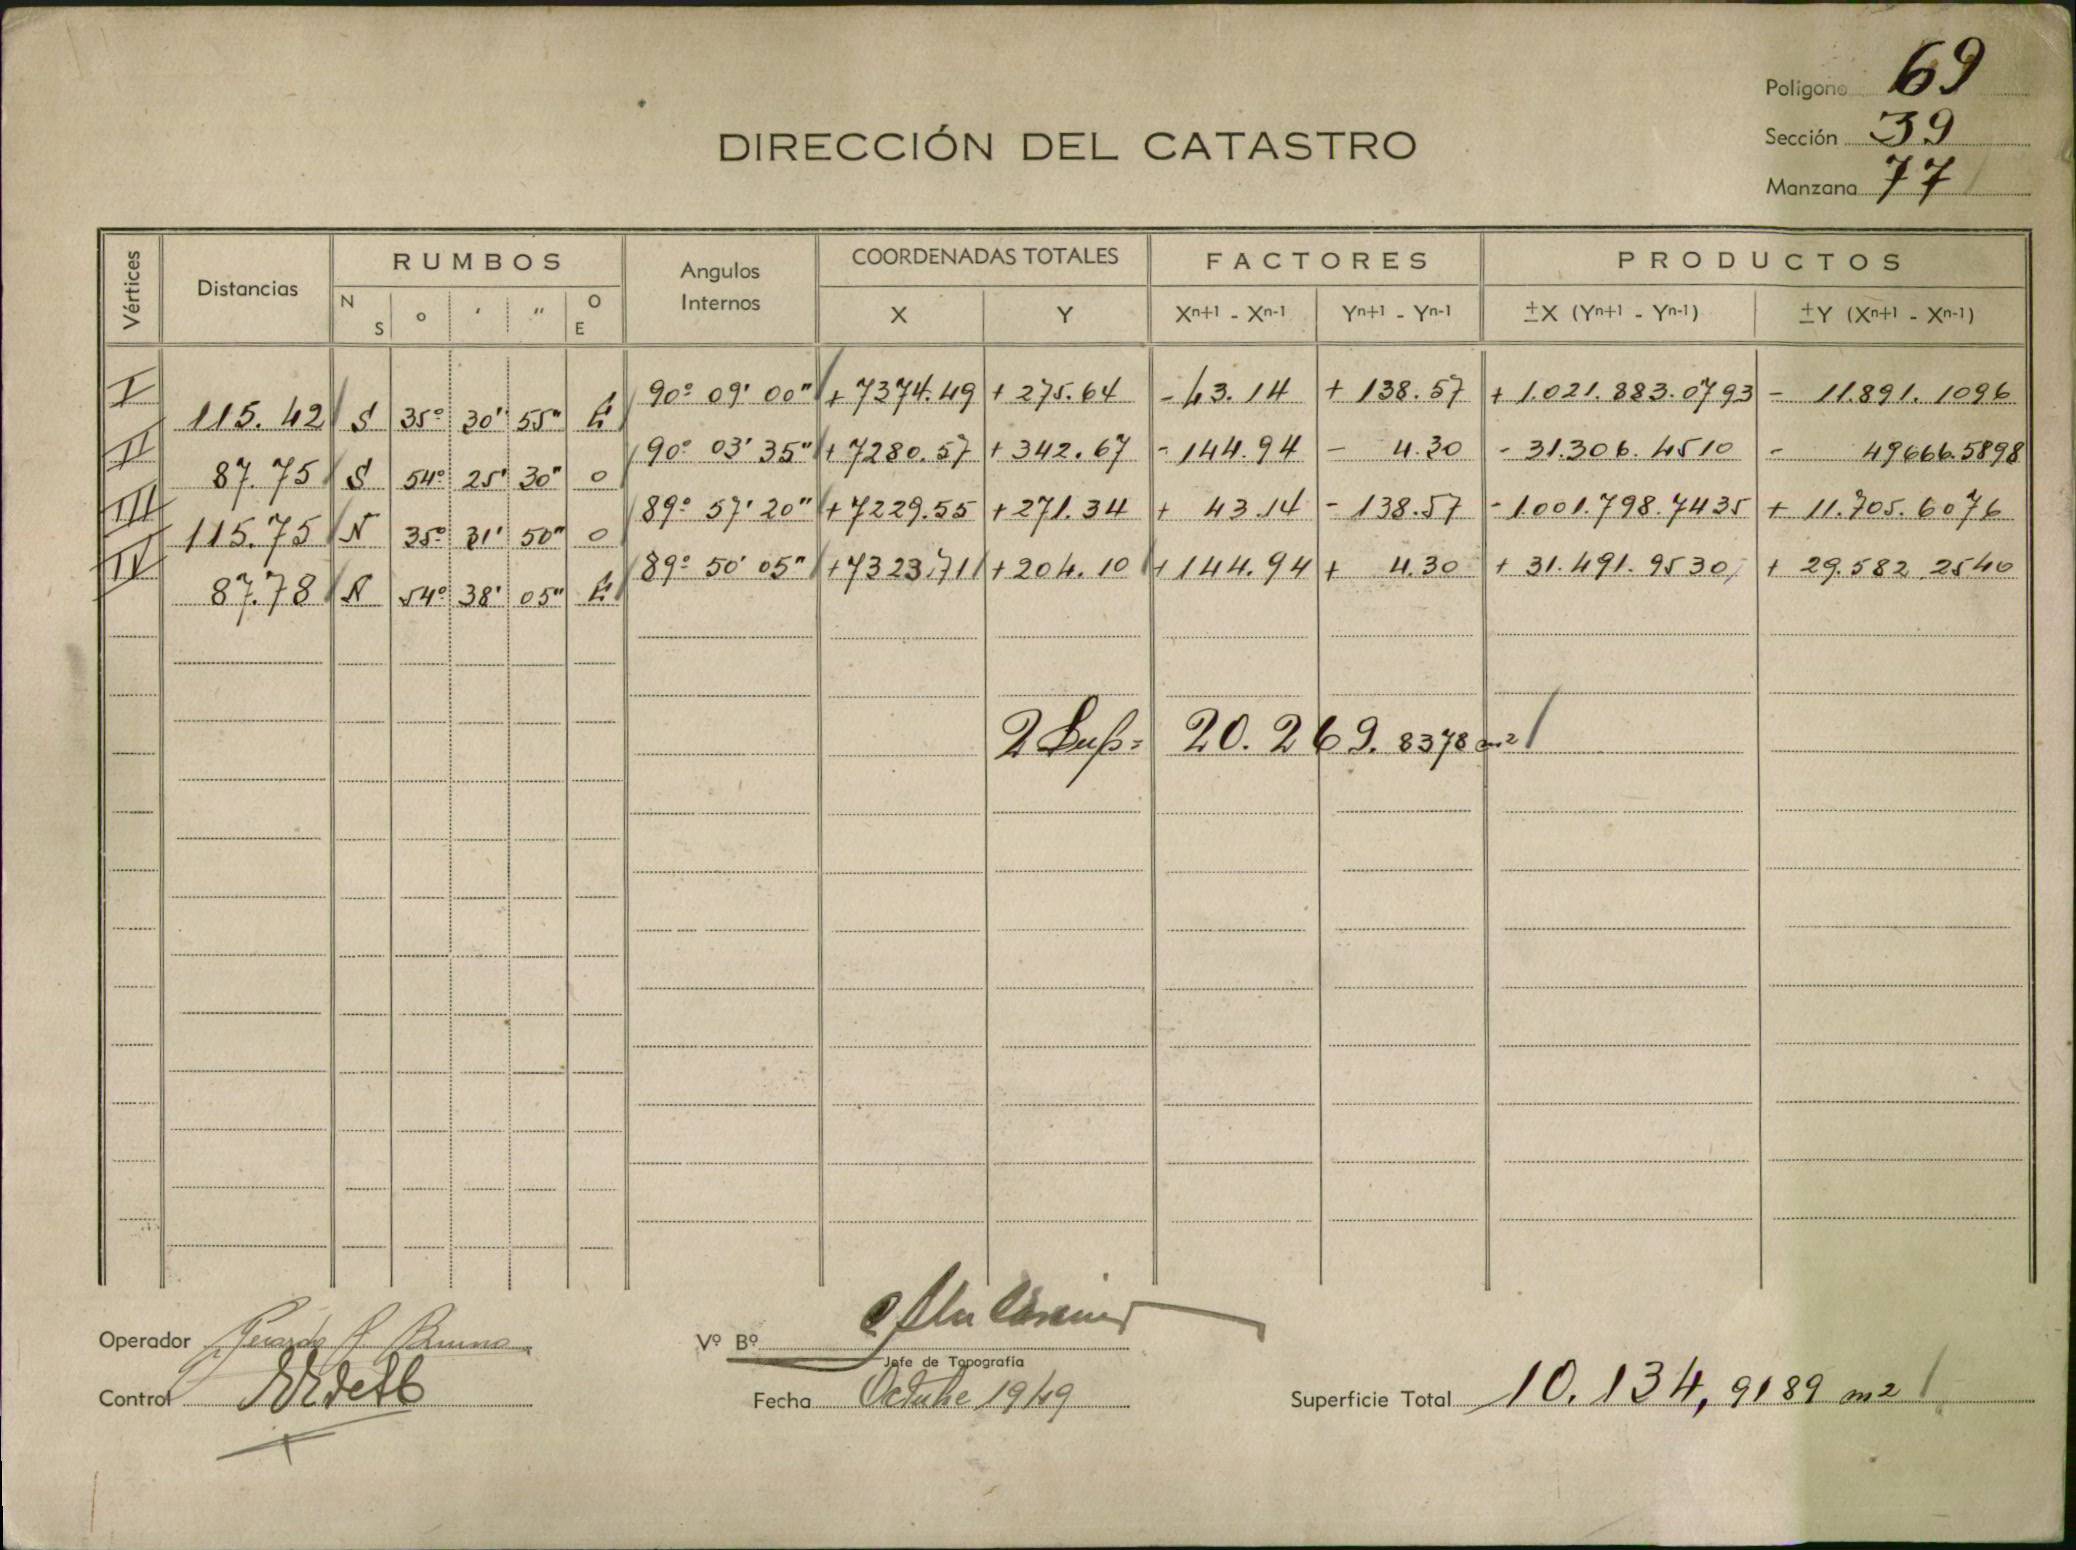 Poligono 69
DIRECCIÓN DEL CATASTRO
Sección 39
Manzana 77
Vértices Distancias RUMBOS Angulos Internos COORDENADAS TOTALES FACTORES PRODUCTOS
N S o ' " O E X Y Xn+1 - Xn-1 Yn+1 - Yn-1 ±X (Yn+1 - Yn-1) ±Y (Xn+1 - Xn-1)
I 90º 09' 00" +7374.49 + 275.64 - 43.14 + 138.57 + 1.021.883.0793 - 11.891.1096
115.42 S 35º 30' 55" E
II 90º 03' 35" + 7280.57 + 342.67 - 144.94 - 4.30 - 31.306.4510 - 49666.5898
87.75 S 54º 25' 30" O
III 89º 57' 20" + 7229.55 + 271.34 + 43.14 - 138.57 - 1001.798.7435 + 11.705.6076
115.75 N 35º 31' 50" O
IV 89º 50' 05" +7323.71 + 204.10 + 144.94 + 4.30 + 31.491.9530 + 29.582.2540
87.78 N 54º 38' 05" E
2 Sup= 20.269.8378 m2
Operador Gerardo
Vº Bº
Jefe de Topografía
Control
Fecha Octubre 1949
Superficie Total 10.134,9189 m2